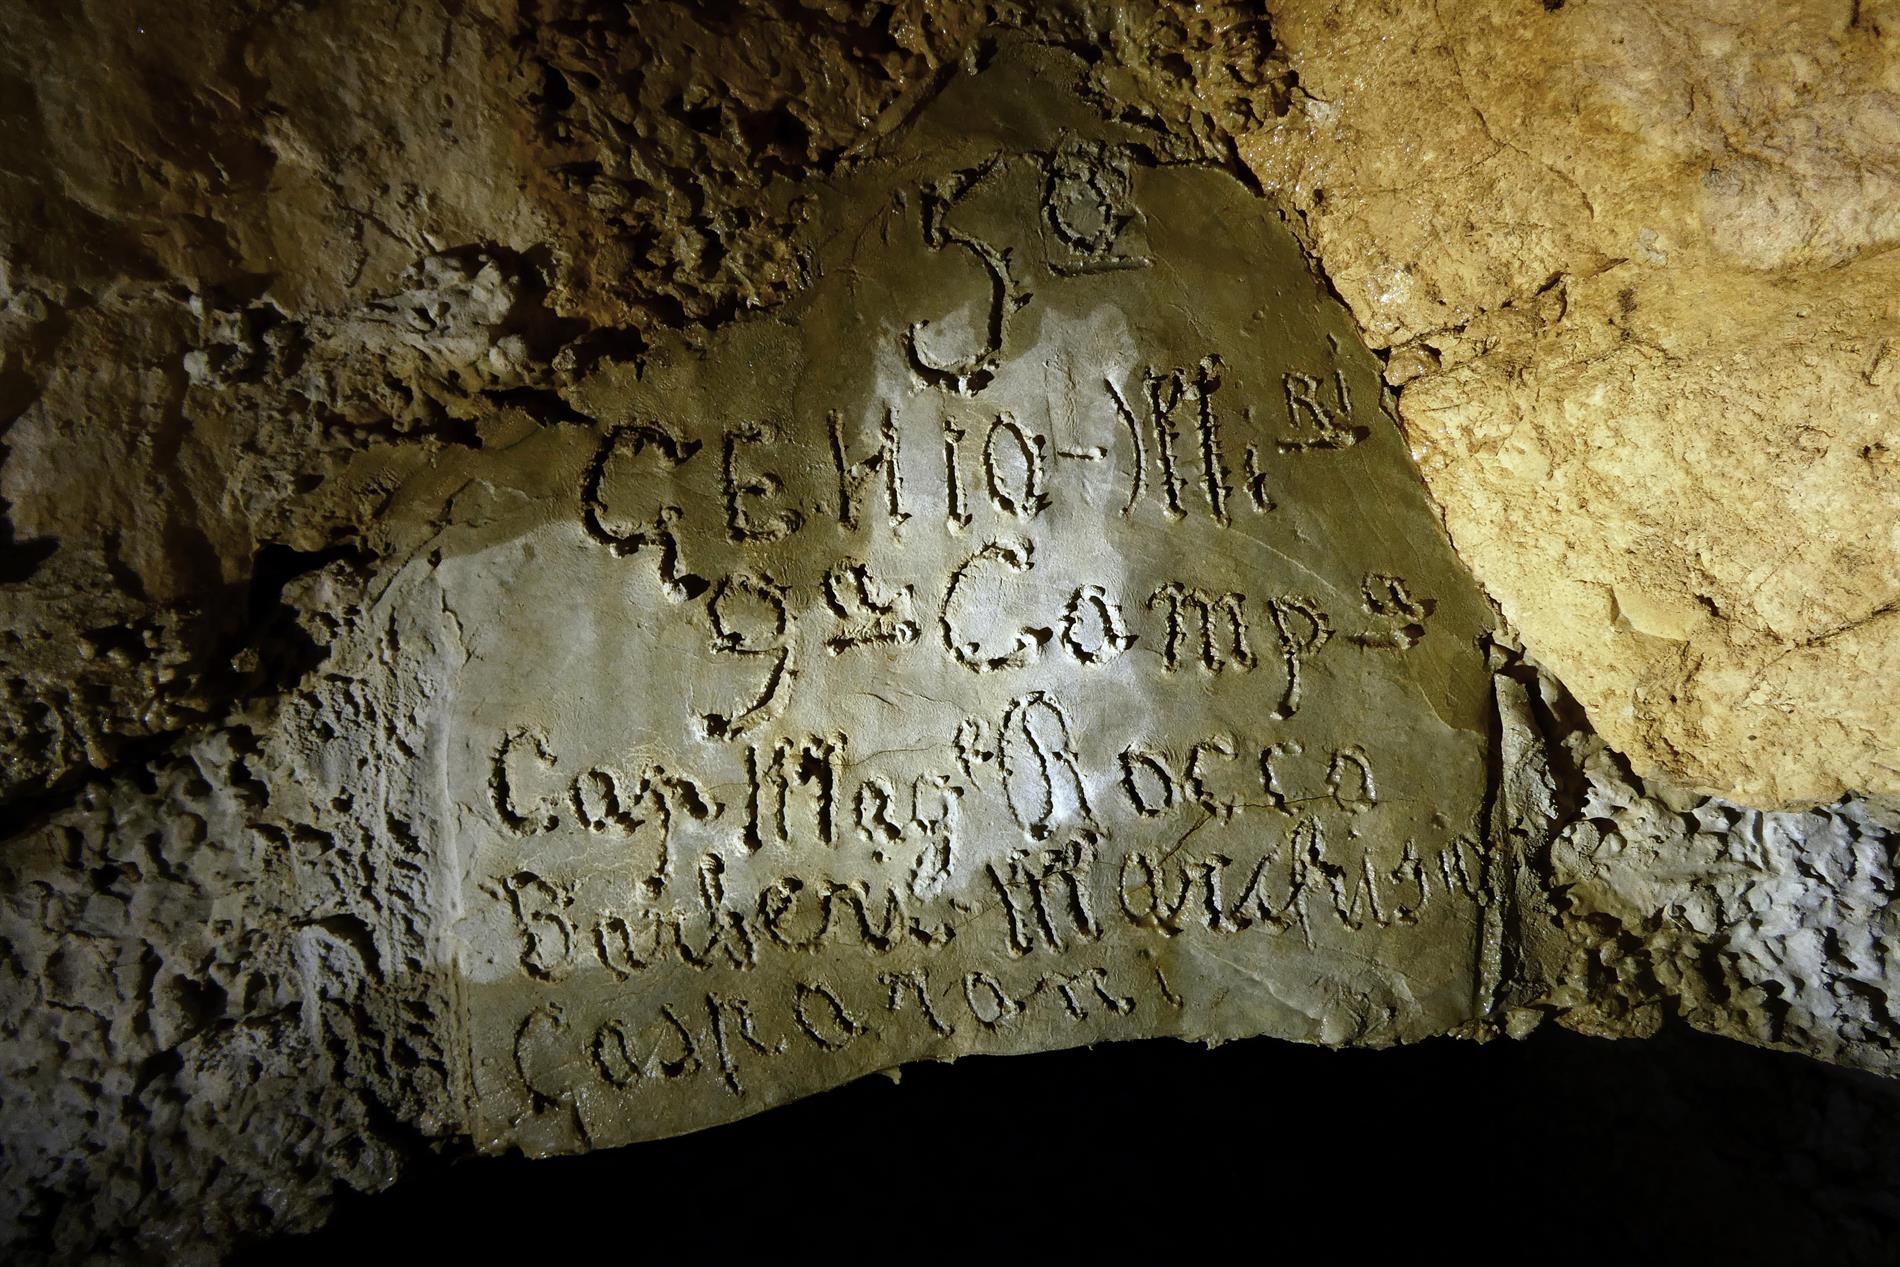 5º
GENIO-Mi RI
9ª Compª
Cap Magre Rocca
Barberi Marchisio
Gasparoni